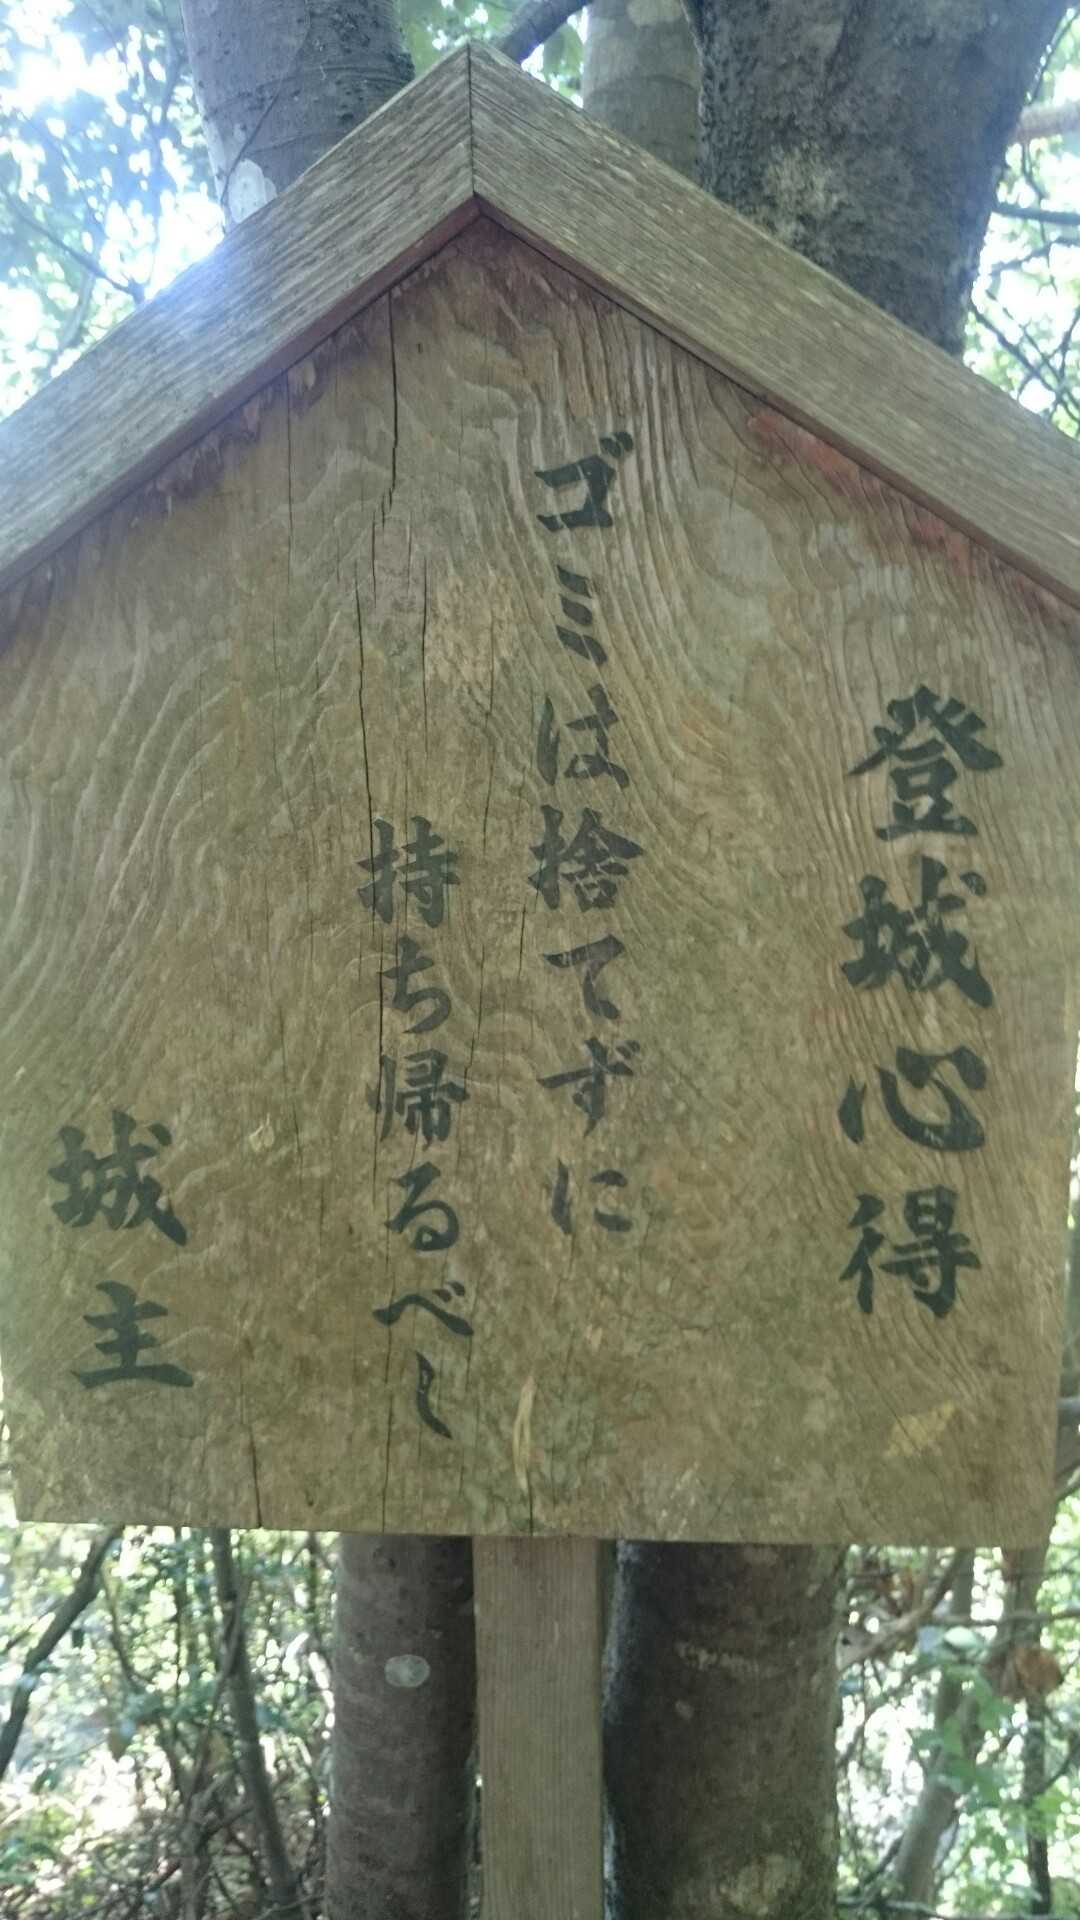 登城心得
ゴミは捨てずに
持ち帰るべし
城主